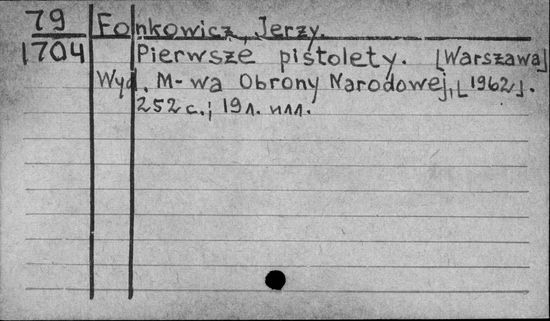 79 Fonkowicz, Jerzy.
1704 Pierwsze pistolety. [Warszawa]
Wyd. M-wa Obrony Narodowej, [1962].
252 с.; 19 л. илл.